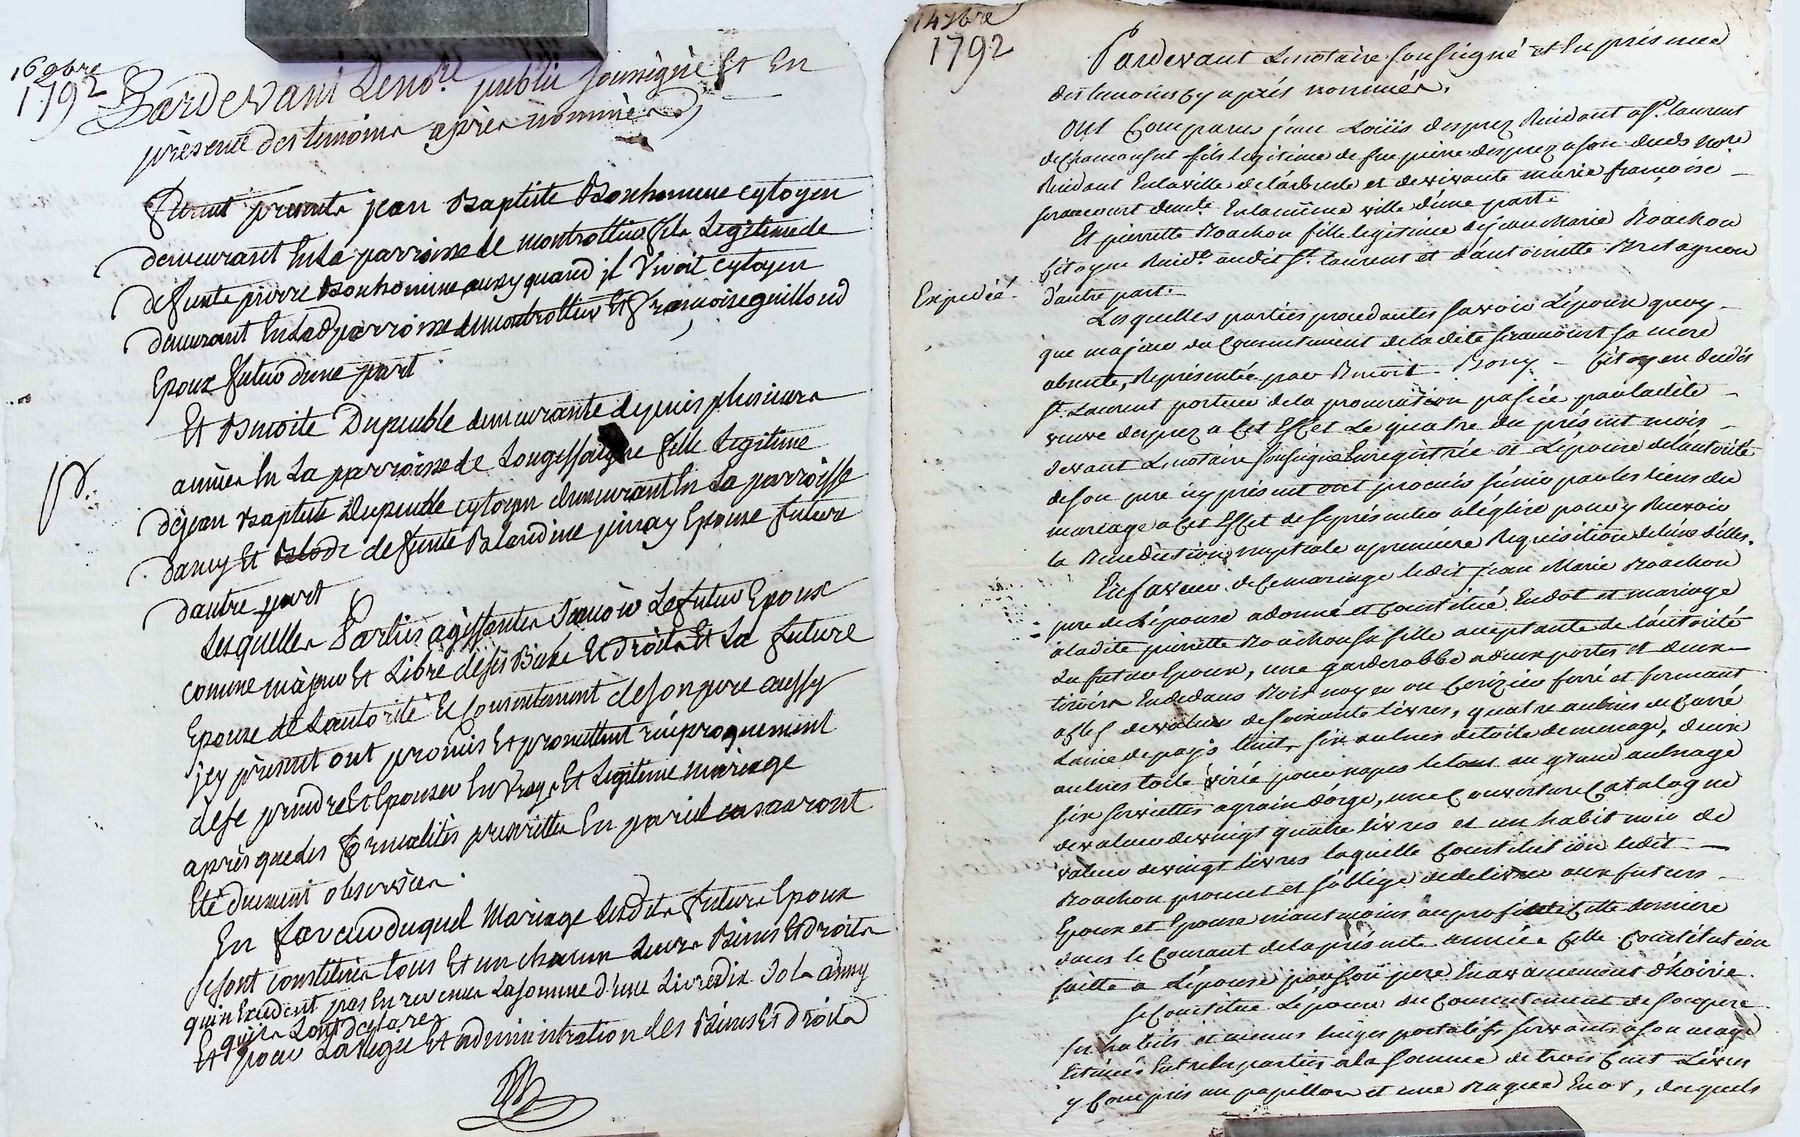 16 9bre
1792
Pardevant Leno.re public soussigné Et En
présence des temoins après nommés
furent présents jean Baptiste Bonhomme cytoyen
demeurant En La parroisse de montrottier fils Legitime de
defunts pierre Bonhomme aussy quand il Vivoit cytoyen
demeurant En Lad parroisse de montrottier Et françoise guilloud
Epoux futur d'une part
Et Benoite Dupeuble demeurante depuis plusieurs
années En La parroisse de Longessaigne fille Legitime
de jean Baptiste Dupeuble cytoyen demeurant En La parroisse
dancy Et defunte Blandine pinay Epouse future
dautre part
Lesquelles Parties agissantes Savoir Le futur Epoux
comme majeur Et Libre de ses Biens Et droits Et La future
Epouse de L'autorité Et Consentement de son pere aussy
jcy présent ont promis Et promettent réciproquement
de se prendre Et Epouser En Vraye Et Legitime mariage
après que les formalités prescrittes En pareil cas auront
Eté dument observées.
En faveur duquel Mariage Lesdits futurs Epoux
se sont constitués tous Et un chacun Leurs Biens Et droits
qui n'Excedent pas En revenus La somme d'une Livre dix sols ainsy
qu'ils L'ont declarez
Et pour La Regie et administration des Biens Et droits
14 7bre
1792
Pardevant Le notaire soussigné et En présence
des temoins cy après nommés.
Ont Comparus jean Louis desprez Résidant a St. laurent
de chamousset fils legitime de feu pierre desprez a son décès no.re
Résidant En la ville de l'arbresle et de vivante marie françoise
francourt demte. En la même ville d'une part.
Et pierrette Roachon fille legitime de jean Marie Roachon
Citoyen Resid.t audit St. laurent et d'antoinette Bretagnon
Expedié.
d'autre part.
Lesquelles parties procedantes savoir L'époux quoy
que majeur du Consentement de la dite francourt sa mere
absente, Représentée par Benoit Bony Citoyen dudit
St. Laurent porteur de la procuration passée par la dite
veuve desprez a Cet Effet Le quatre du présent mois
devant Le notaire soussigné Enregistrée et L'épouse de l'autorité
de son pere icy présent ont promis s'unir par les liens du
mariage a Cet Effet de se présenter a l'église pour y Recevoir
la Bénédiction nuptiale a premiére Requisition de l'un d'elles.
En faveur de Ce mariage ledit jean Marie Roachon
pere de L'épouse a donné et Constitué En dot et mariage
a la dite pierrette Roachon sa fille acceptante de l'autorité
du futur Epoux, une garderobbe a deux portes et deux
tiroirs En dedans Bois noyer ou Cerizier ferré et fermant
a clef de valeur de soixante livres, quatre aulnes de Carré
Laine de pays teint, six aulnes de toile de menage, deux
aulnes toile pour napes le tout au grand aulnage
six serviettes a grain d'orge, une Couverture Catalogne
de valeur de vingt quatre livres et un habit noir de
valeur de vingt livres laquelle Constitution ledit
Roachon promet et s'oblige de delivrer aux futurs
Epoux et Epouse néantmoins au profit de Cette derniere
dans le Courant de la présente année Cette Constitution
faitte a L'épouse par son pere En avancement d'hoirie.
Se Constitue L'épouse du Consentement de son pere
ses habits et menus linges portatifs servants a son usage
Estimés Entre les parties a la somme de trois Cent Livres
y Compris un papillon et une Bague En or, desquels